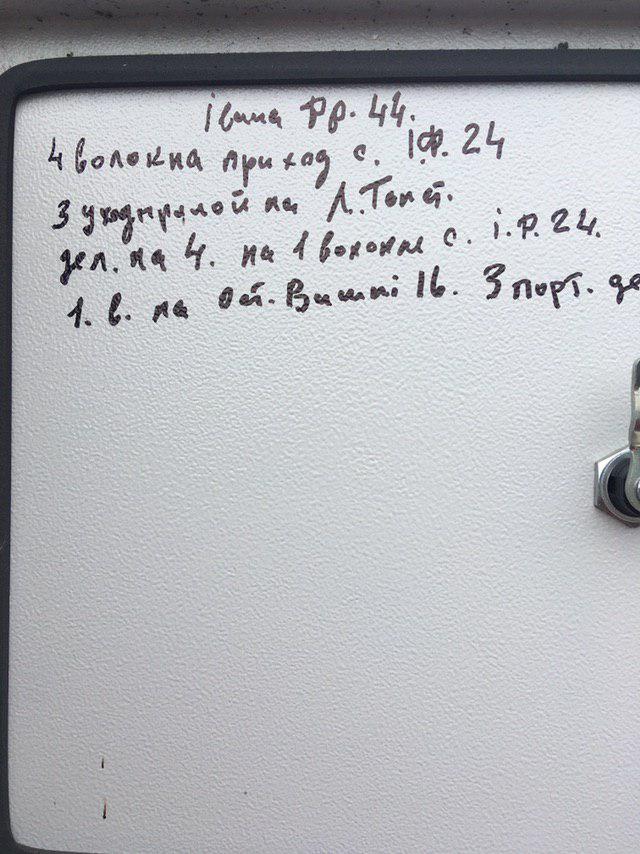 івана Фр. 44.
4 волокна приход с. І.Ф. 24
3 уход на Л.
дел. на 4. на 1 волокне с. і.Ф. 24.
1. в. на От. Вишні 16. 3 порт. де